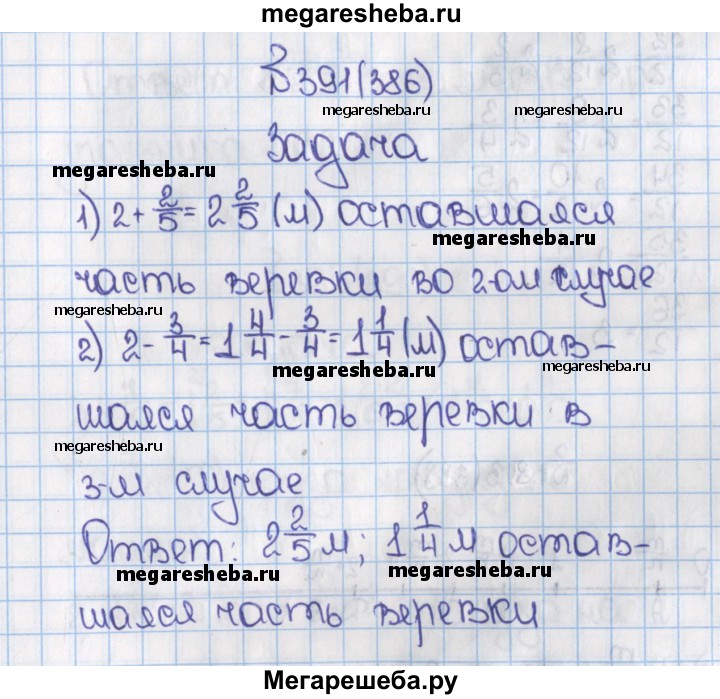 megaresheba.ru
№391(386)
megaresheba.ru megaresheba.ru
Задача
megaresheba.ru
1) 2 + 2/5 = 2 2/5 (м) оставшаяся
megaresheba.ru
часть веревки во 2-ом случае
megaresheba.ru
2) 2 - 3/4 = 1 4/4 - 3/4 = 1 1/4 (м) остав-
megaresheba.ru megaresheba.ru
шаяся часть веревки в
megaresheba.ru
3-м случае
Ответ: 2 2/5 м; 1 1/4 м остав-
megaresheba.ru megaresheba.ru
шаяся часть веревки
Мегарешеба.ру